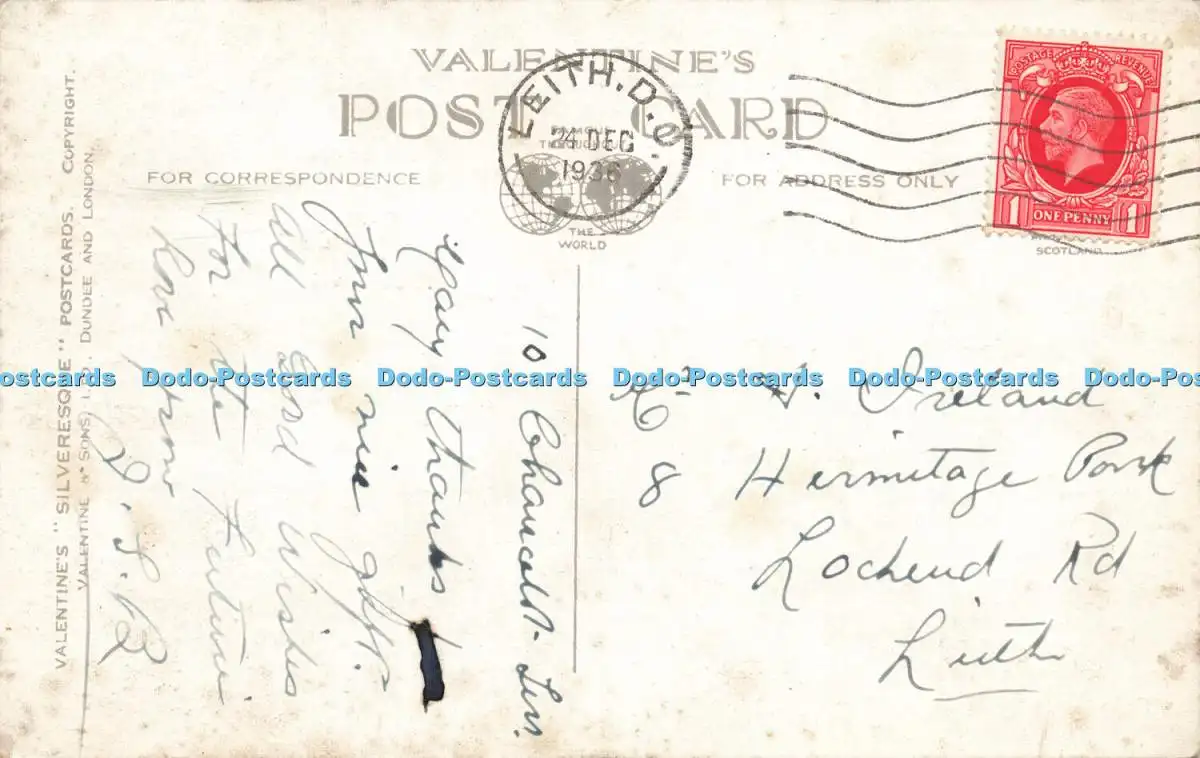 VALENTINE'S
POST CARD
LEITH. D.O.
24 DEC
1936
FAMOUS
THROUGHOUT
THE
WORLD
FOR CORRESPONDENCE
FOR ADDRESS ONLY
POSTAGE REVENUE
1 ONE PENNY 1
SCOTLAND
VALENTINE'S "SILVERESQUE" POSTCARDS. COPYRIGHT.
VALENTINE & SONS, LTD. DUNDEE AND LONDON.
10 Chancelot Terr.
Many thanks
for
your nice gift.
All Good Wishes
for the Future
Love from
J.S.B
H. Ireland
8 Hermitage Park
Lochend Rd
Leith
Dodo-Postcards Dodo-Postcards Dodo-Postcards Dodo-Postcards Dodo-Postcards Dodo-Postcards